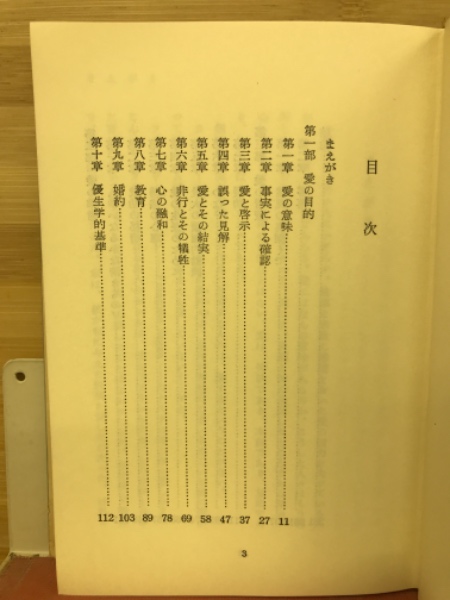 目次
まえがき
第一部 愛の目的
第一章 愛の意味 11
第二章 事実による確認 27
第三章 愛と啓示 37
第四章 誤った見解 47
第五章 愛とその結実 58
第六章 非行とその犠牲 69
第七章 心の融和 78
第八章 教育 89
第九章 婚約 103
第十章 優生学的基準 112
3